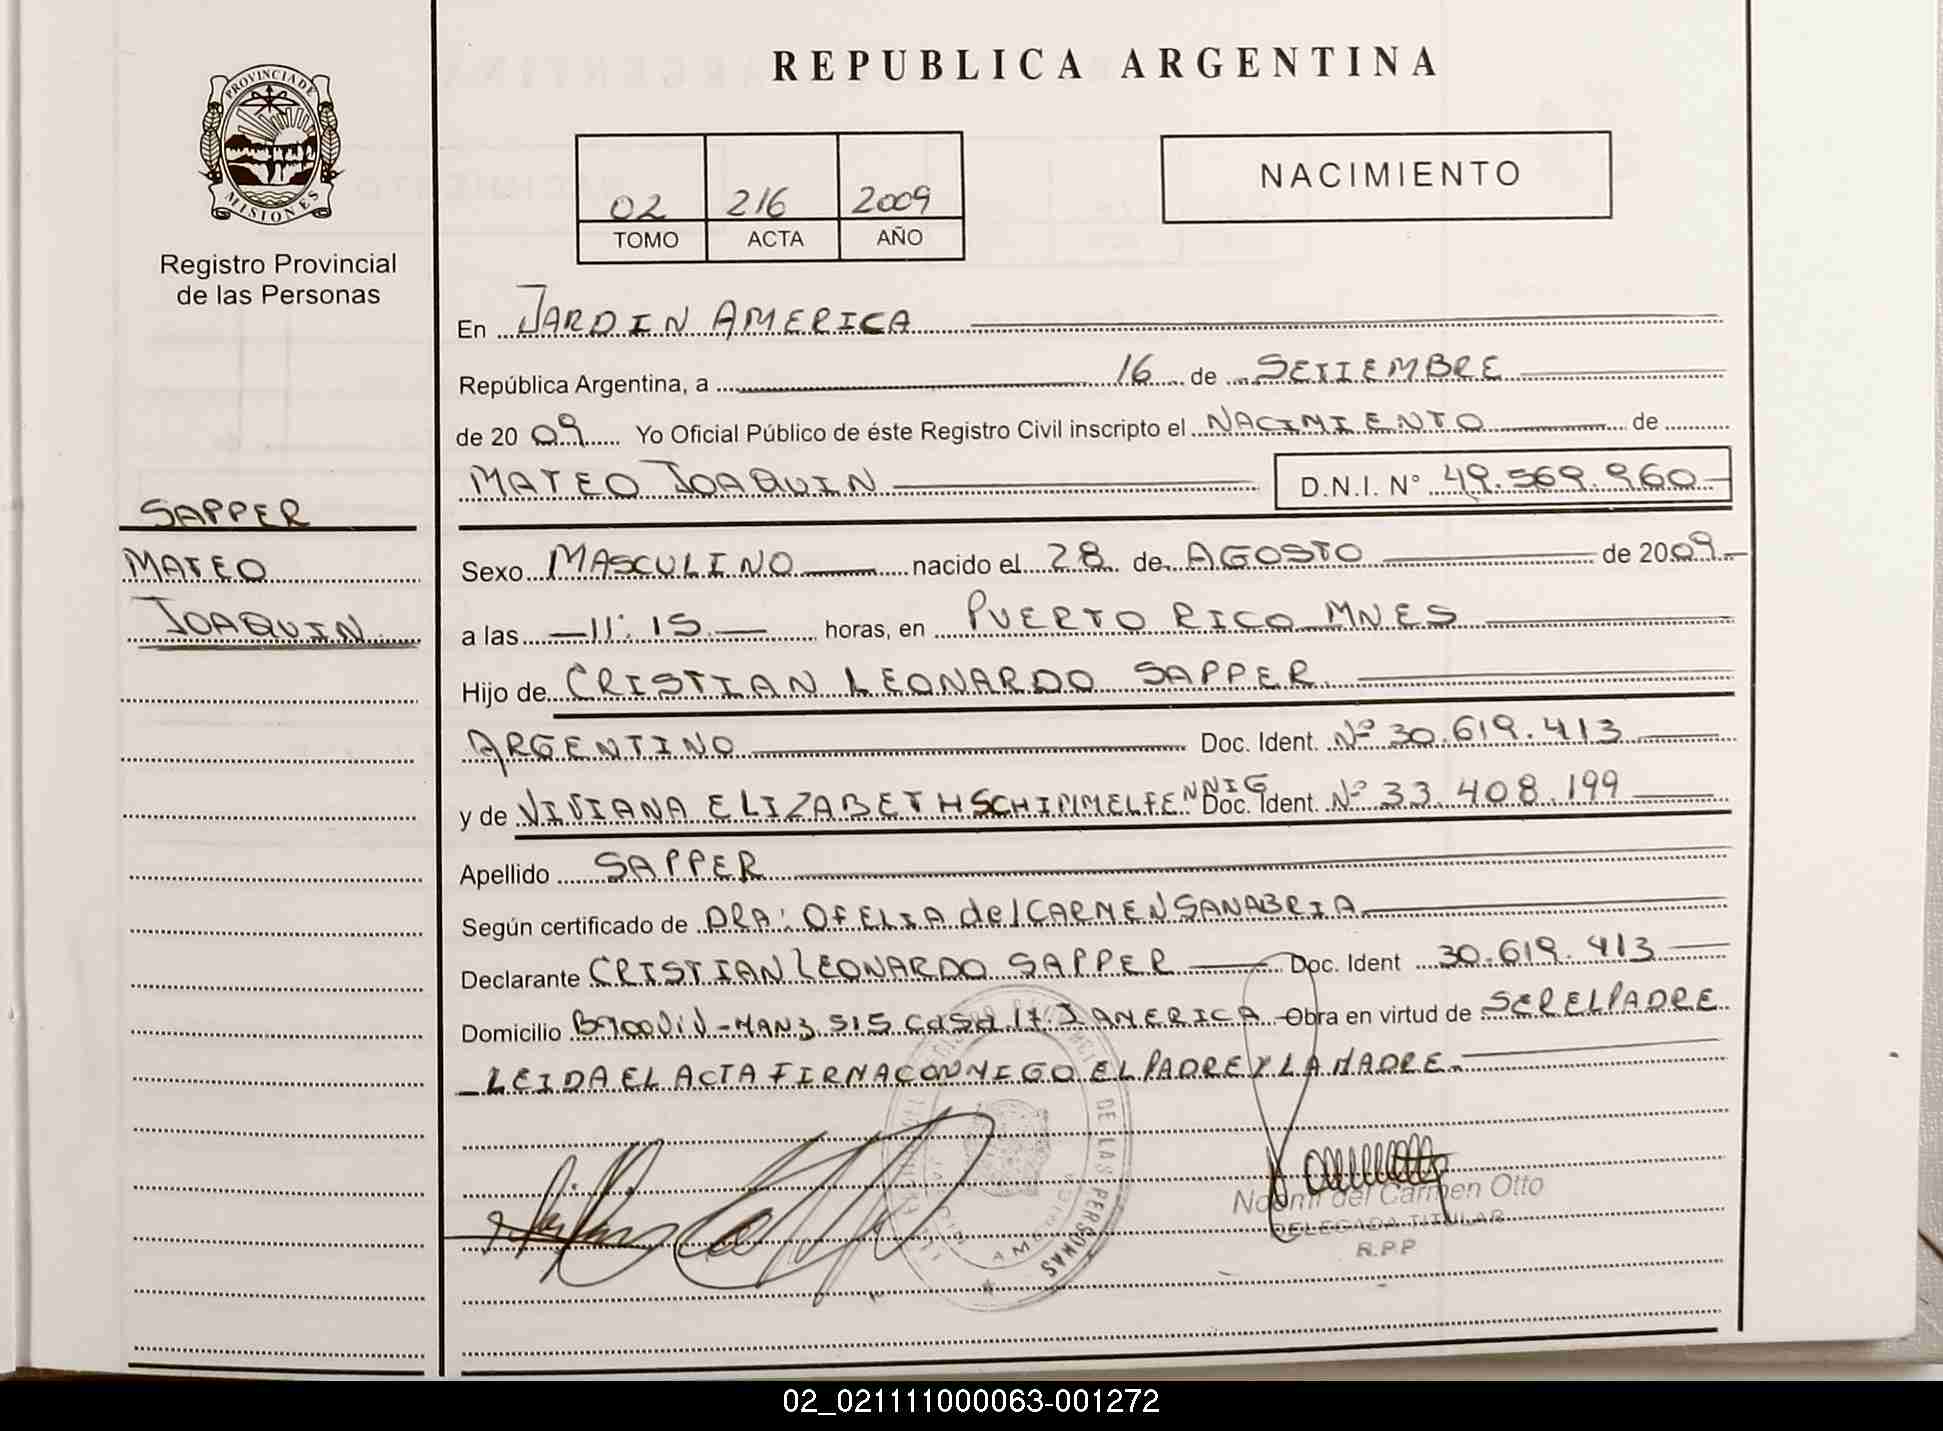 REPUBLICA ARGENTINA
PROVINCIA DE
MISIONES
Registro Provincial
de las Personas
02 216 2009
TOMO ACTA AÑO
NACIMIENTO
SAPPER
MATEO
JOAQUIN
En JARDIN AMERICA
República Argentina, a 16 de SETIEMBRE
de 20 09 Yo Oficial Público de éste Registro Civil inscripto el NACIMIENTO de
MATEO JOAQUIN D.N.I. N° 49.569.960
Sexo MASCULINO nacido el 28 de AGOSTO de 2009
a las 11:15 horas, en PUERTO RICO MNES
Hijo de CRISTIAN LEONARDO SAPPER
ARGENTINO Doc. Ident. Nº 30.619.413
y de VIVIANA ELIZABETH SCHIMMELFENNIG Doc. Ident. Nº 33.408.199
Apellido SAPPER
Según certificado de DRA: OFELIA del CARMEN SANABRIA
Declarante CRISTIAN LEONARDO SAPPER Doc. Ident 30.619.413
Domicilio MAN3 515 CASA 17 J AMERICA Obra en virtud de SER EL PADRE
LEIDA EL ACTA FIRMA CONMIGO EL PADRE Y LA MADRE.
DE LAS PERSONAS
Noemi del Carmen Otto
DELEGADA TITULAR
R.P.P
02_021111000063-001272